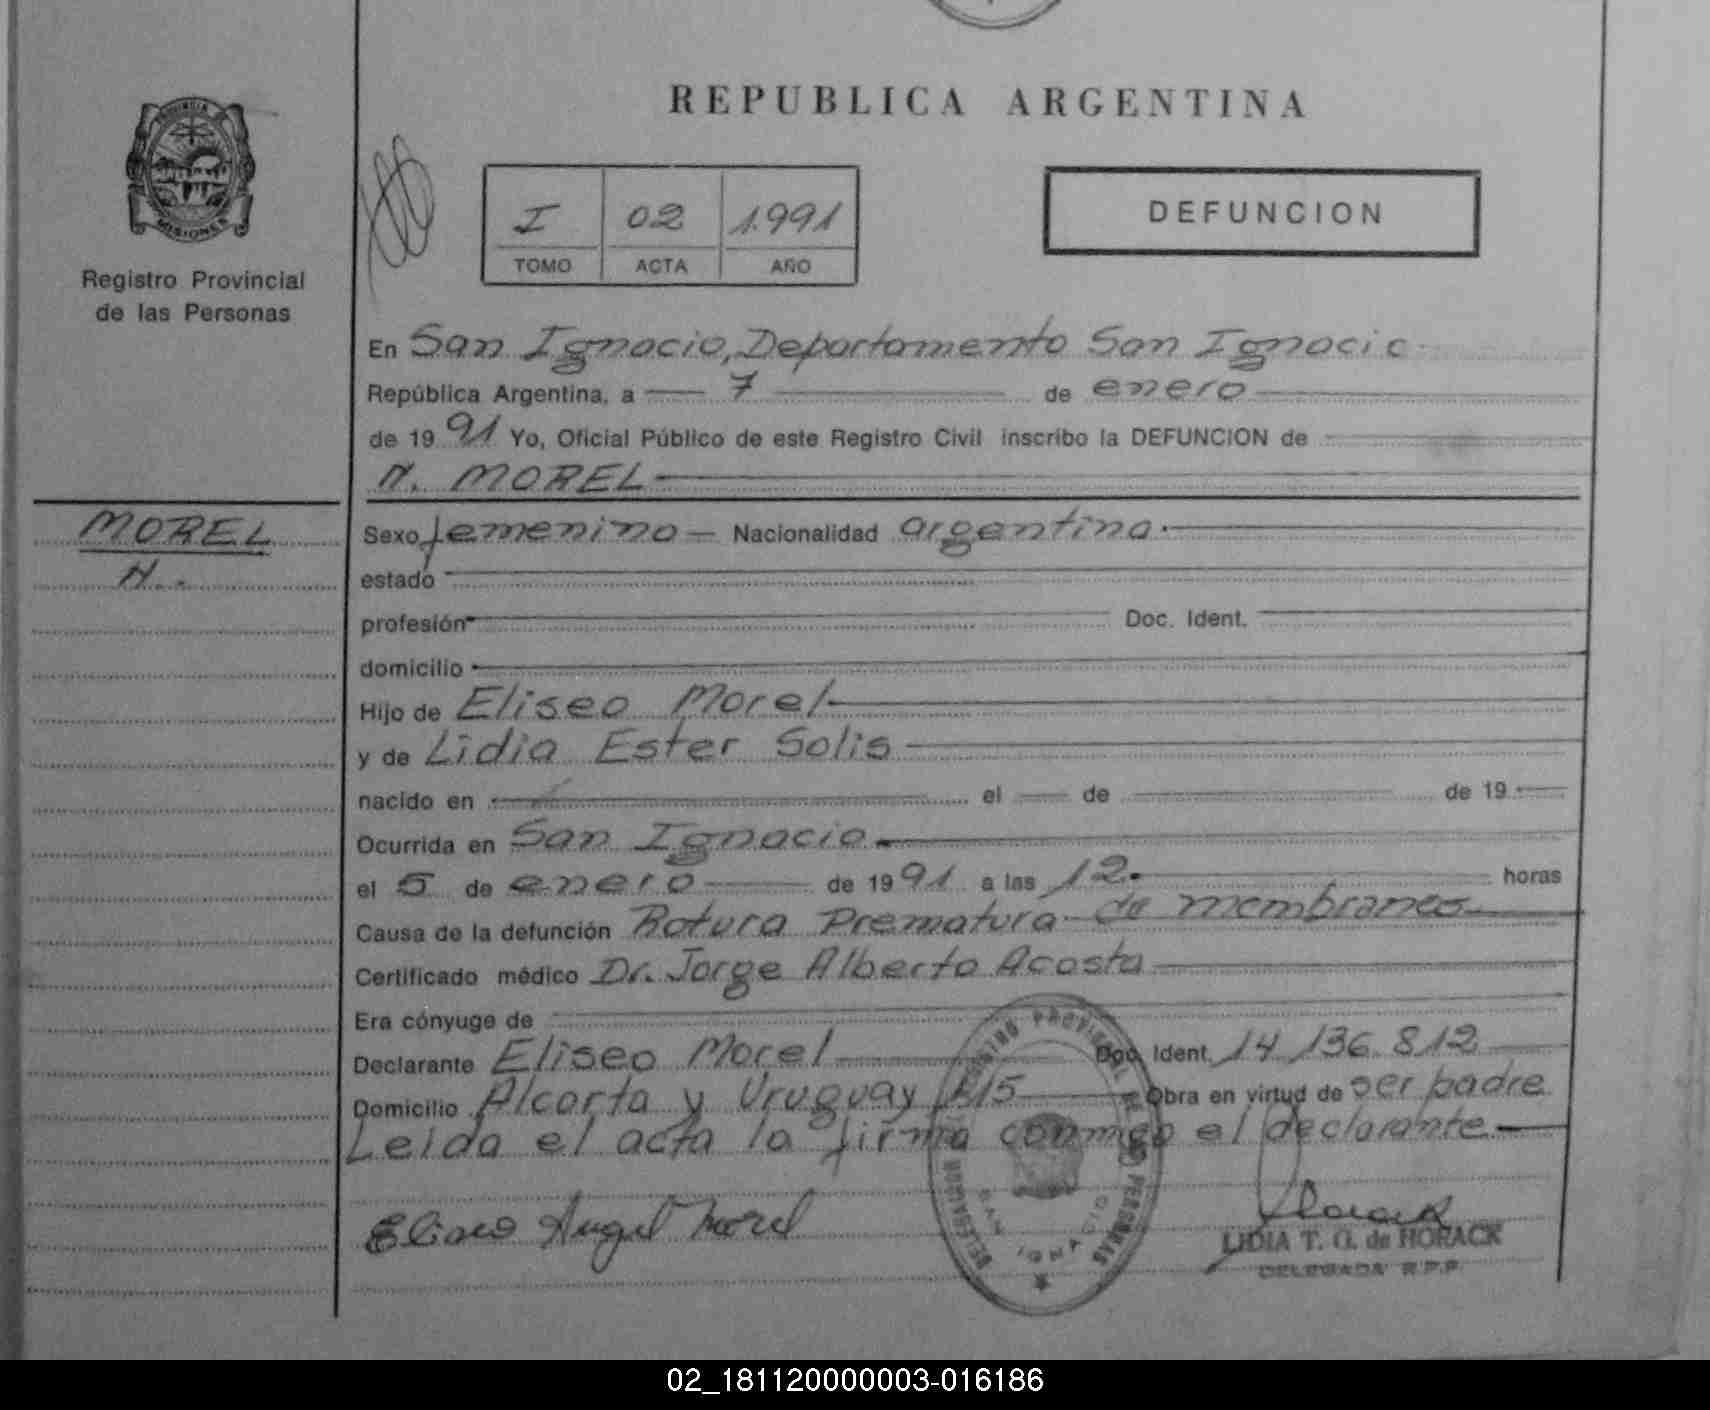 REPUBLICA ARGENTINA
PROVINCIA DE
MISIONES
Registro Provincial
de las Personas
I 02 1.991
TOMO ACTA AÑO
DEFUNCION
En San Ignacio, Departamento San Ignacio
República Argentina, a 7 de enero
de 1991 Yo, Oficial Público de este Registro Civil inscribo la DEFUNCION de
N. MOREL
MOREL
N.
Sexo femenino Nacionalidad argentina.
estado
profesión Doc. Ident.
domicilio
Hijo de Eliseo Morel
y de Lidia Ester Solis
nacido en el de de 19
Ocurrida en San Ignacio
el 5 de enero de 1991 a las 12. horas
Causa de la defunción Rotura Prematura de membranas
Certificado médico Dr. Jorge Alberto Acosta
Era cónyuge de
Declarante Eliseo Morel Doc. Ident. 14 136 812
Domicilio Alcorta y Uruguay Obra en virtud de ser padre
Leida el acta la firma conmigo el declarante
Eliseo Angel Morel
REGISTRO PROVINCIAL DE LAS PERSONAS
SAN IGNACIO
LIDIA T. G. de HORACK
DELEGADA R.P.P.
02_181120000003-016186